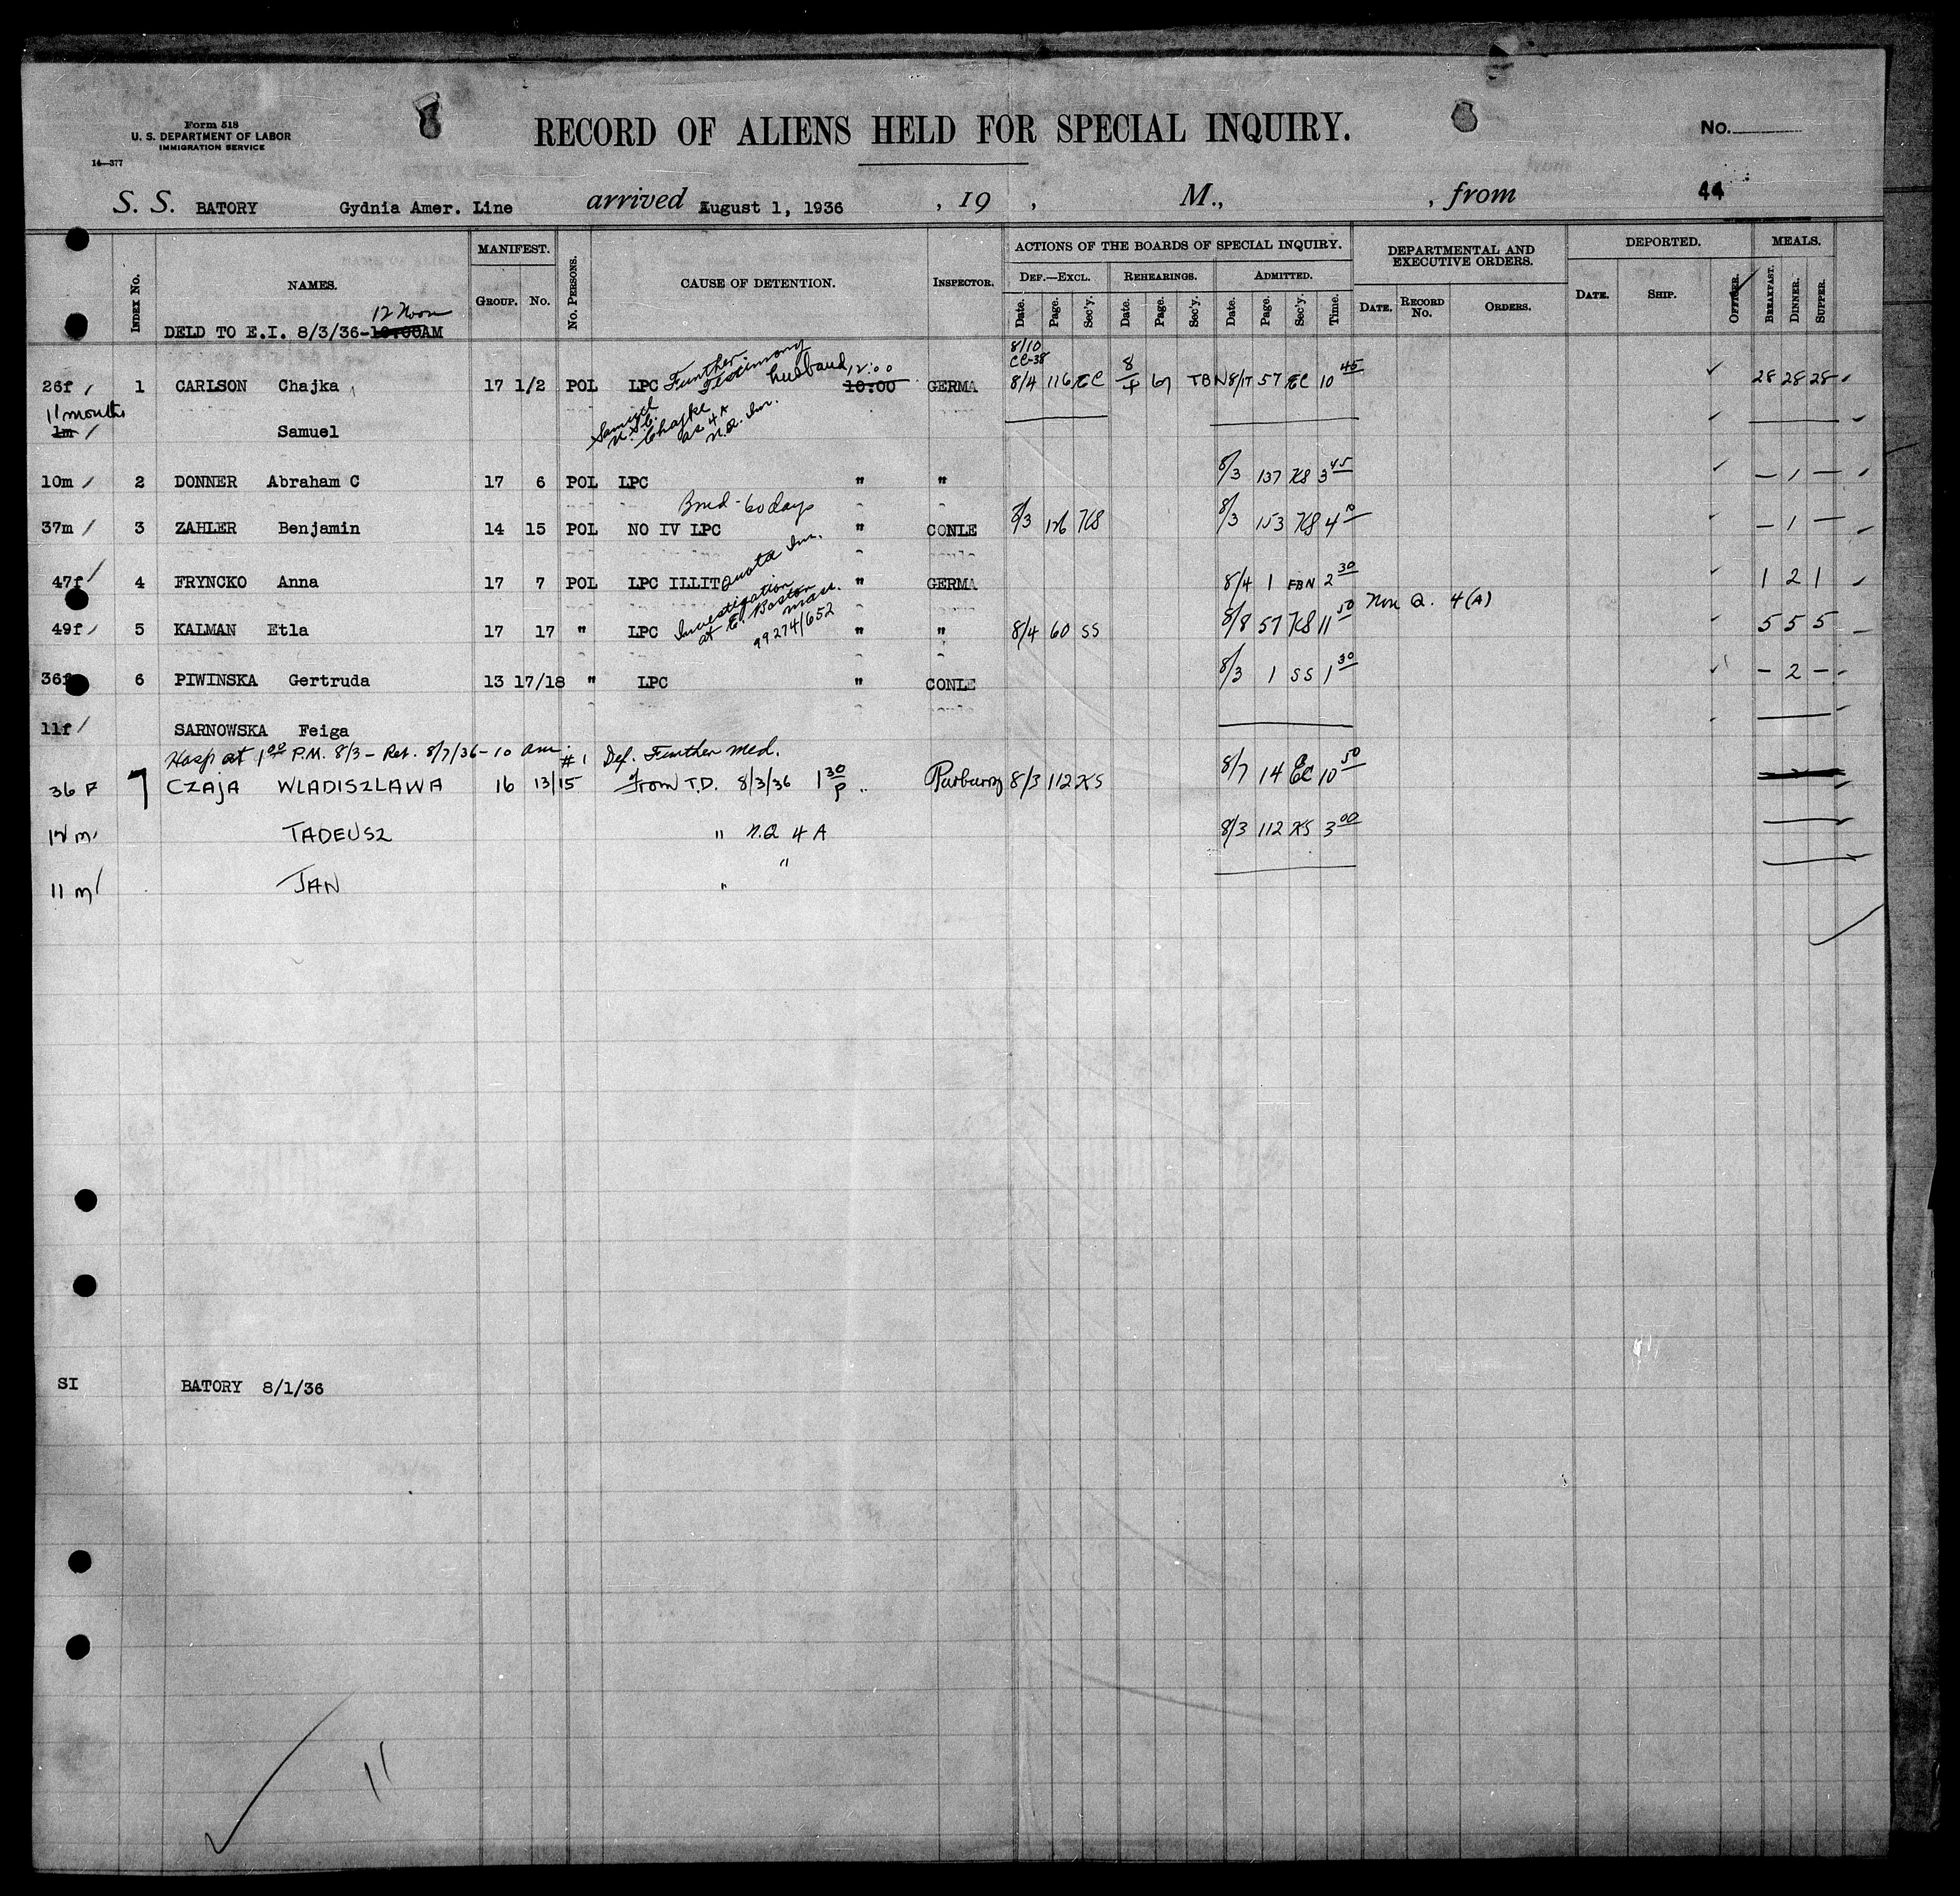 Form 518
U. S. DEPARTMENT OF LABOR
IMMIGRATION SERVICE
14—377
RECORD OF ALIENS HELD FOR SPECIAL INQUIRY.
No.
44
S. S. BATORY Gydnia Amer. Line arrived August 1, 1936 , 19 , M., , from
INDEX No. NAMES. MANIFEST. GROUP. No. No. PERSONS. CAUSE OF DETENTION. INSPECTOR. ACTIONS OF THE BOARDS OF SPECIAL INQUIRY. DEF.—EXCL. Date. Page. Sec'y. REHEARINGS. Date. Page. Sec'y. ADMITTED. Date. Page. Sec'y. Time. DEPARTMENTAL AND EXECUTIVE ORDERS. DATE. RECORD No. ORDERS. DEPORTED. DATE. SHIP. OFFICER. MEALS. BREAKFAST. DINNER. SUPPER.
12 Noon
DELD TO E.I. 8/3/36-10:00AM
8/10
CC-38
26f 1 CARLSON Chajka 17 1/2 POL LPC Further Testimony husband 12:00 10:00 GERMA 8/4 116 EC 8/ 67 TBN 8/17 57 EC 10 45 28 28 28
11 months
1m Samuel Samuel U.S.C. Chajke as 4 A N.Q. Im.
10m 2 DONNER Abraham C 17 6 POL LPC " " 8/3 137 KS 3 45 — 1 —
Bond - 60 days
37m 3 ZAHLER Benjamin 14 15 POL NO IV LPC " CONLE 8/3 126 KS 8/3 153 KS 4 10 — 1 —
47f 4 FRYNCKO Anna 17 7 POL LPC ILLIT Quota Im. " GERMA 8/4 1 FBN 2 30 1 2 1
Non Q. 4(A)
49f 5 KALMAN Etla 17 17 " LPC Investigation at E. Boston Mass. 99274/652 " " 8/4 60 SS 8/8 57 KS 11 50 5 5 5
36f 6 PIWINSKA Gertruda 13 17/18 " LPC " CONLE 8/3 1 SS 1 30 - 2 -
11f SARNOWSKA Feiga
Hosp at 1 00 P.M. 8/3 - Ret. 8/7/36 - 10 am. #1 Def. Further med.
36 F 7 CZAJA WLADISZLAWA 16 13/15 From T.D. 8/3/36 1 30 P " 8/3 112 KS 8/7 14 EC 10 50
12 m TADEUSZ " N.Q 4 A 8/3 112 KS 3 00
11 m JAN " "
SI BATORY 8/1/36
11